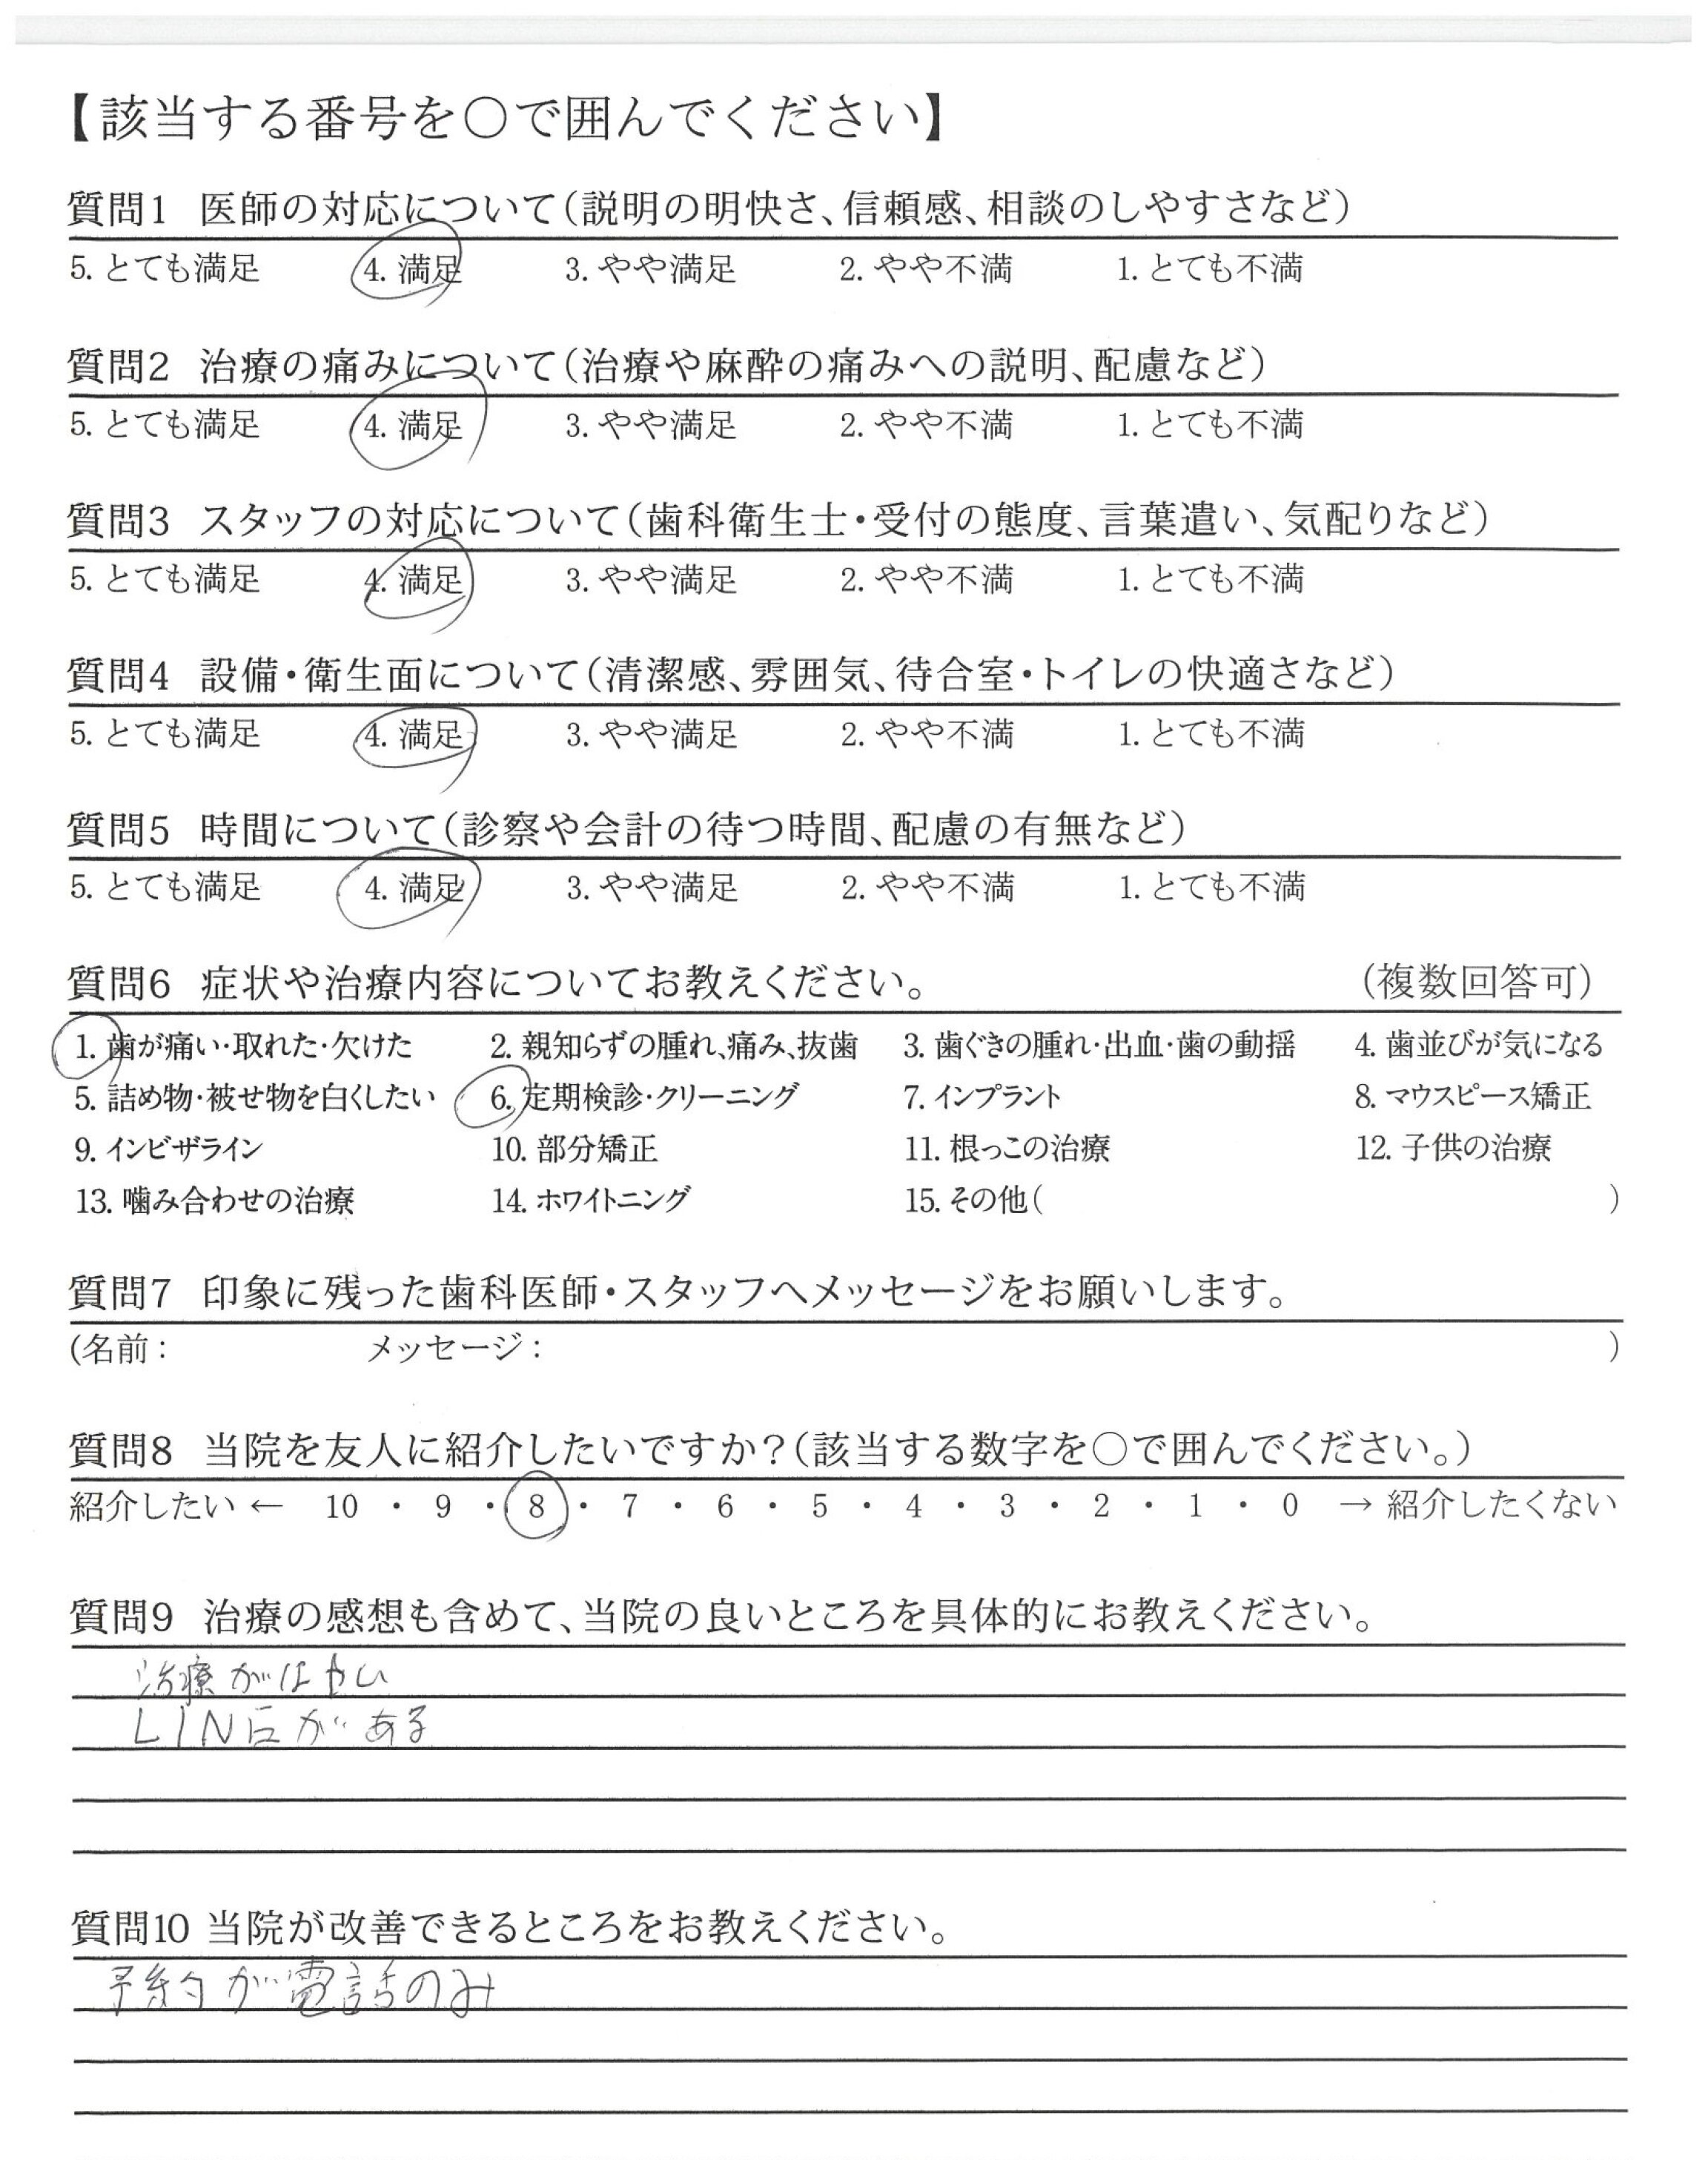 【該当する番号を○で囲んでください】
質問1 医師の対応について（説明の明快さ、信頼感、相談のしやすさなど）
5. とても満足 4. 満足 3. やや満足 2. やや不満 1. とても不満
質問2 治療の痛みについて（治療や麻酔の痛みへの説明、配慮など）
5. とても満足 4. 満足 3. やや満足 2. やや不満 1. とても不満
質問3 スタッフの対応について（歯科衛生士・受付の態度、言葉遣い、気配りなど）
5. とても満足 4. 満足 3. やや満足 2. やや不満 1. とても不満
質問4 設備・衛生面について（清潔感、雰囲気、待合室・トイレの快適さなど）
5. とても満足 4. 満足 3. やや満足 2. やや不満 1. とても不満
質問5 時間について（診察や会計の待つ時間、配慮の有無など）
5. とても満足 4. 満足 3. やや満足 2. やや不満 1. とても不満
質問6 症状や治療内容についてお教えください。 （複数回答可）
1. 歯が痛い・取れた・欠けた 2. 親知らずの腫れ、痛み、抜歯 3. 歯ぐきの腫れ・出血・歯の動揺 4. 歯並びが気になる
5. 詰め物・被せ物を白くしたい 6. 定期検診・クリーニング 7. インプラント 8. マウスピース矯正
9. インビザライン 10. 部分矯正 11. 根っこの治療 12. 子供の治療
13. 噛み合わせの治療 14. ホワイトニング 15. その他（ ）
質問7 印象に残った歯科医師・スタッフへメッセージをお願いします。
(名前： メッセージ： ）
質問8 当院を友人に紹介したいですか？（該当する数字を○で囲んでください。）
紹介したい ← 10 ・ 9 ・ 8 ・ 7 ・ 6 ・ 5 ・ 4 ・ 3 ・ 2 ・ 1 ・ 0 → 紹介したくない
質問9 治療の感想も含めて、当院の良いところを具体的にお教えください。
治療がはやい
LINEがある
質問10 当院が改善できるところをお教えください。
予約が電話のみ